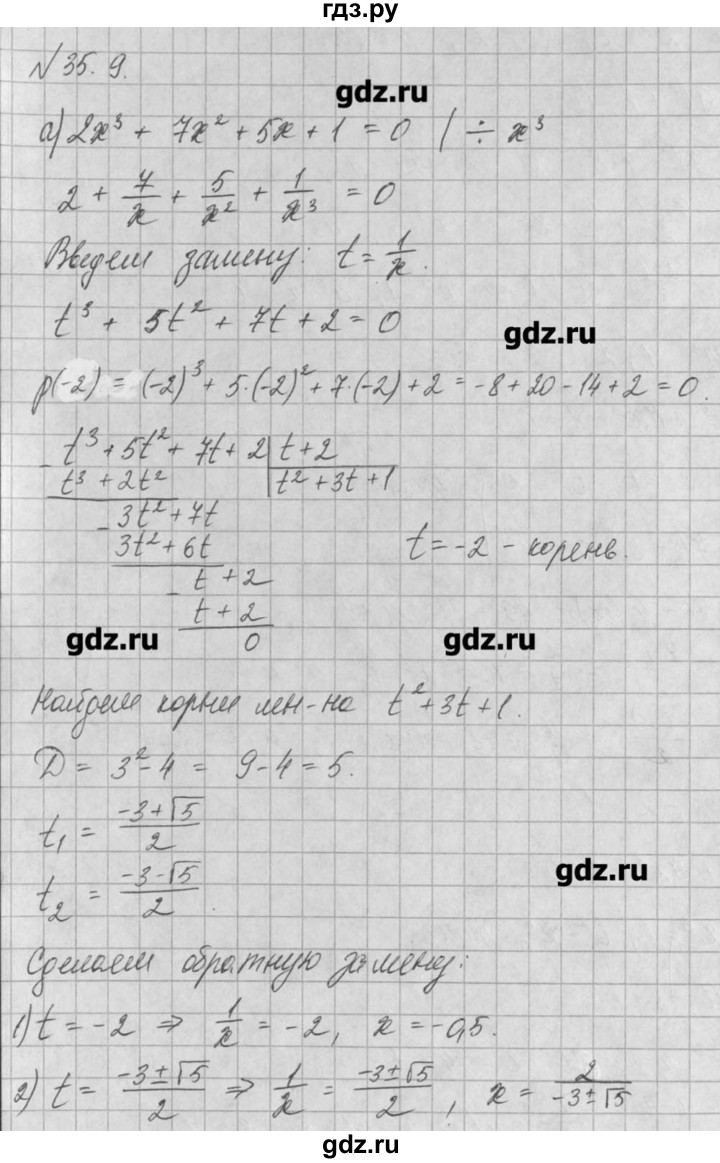 гдз.ру
№ 35. 9.
gdz.ru
а) 2x³ + 7x² + 5x + 1 = 0 | ÷ x³
2 + 7/x + 5/x² + 1/x³ = 0
Введем замену: t = 1/x.
t³ + 5t² + 7t + 2 = 0
gdz.ru
p(-2) = (-2)³ + 5·(-2)² + 7·(-2) + 2 = -8 + 20 - 14 + 2 = 0.
t³ + 5t² + 7t + 2 | t + 2
t³ + 2t² | t² + 3t + 1
- 3t² + 7t
3t² + 6t
t = -2 - корень.
- t + 2
t + 2
0
gdz.ru gdz.ru
Найдем корни мн-на t² + 3t + 1.
D = 3² - 4 = 9 - 4 = 5.
t₁ = (-3 + √5)/2
t₂ = (-3 - √5)/2.
gdz.ru
Сделаем обратную замену:
1) t = -2 ⇒ 1/x = -2, x = -0,5.
2) t = (-3 ± √5)/2 ⇒ 1/x = (-3 ± √5)/2, x = 2/(-3 ± √5)
gdz.ru